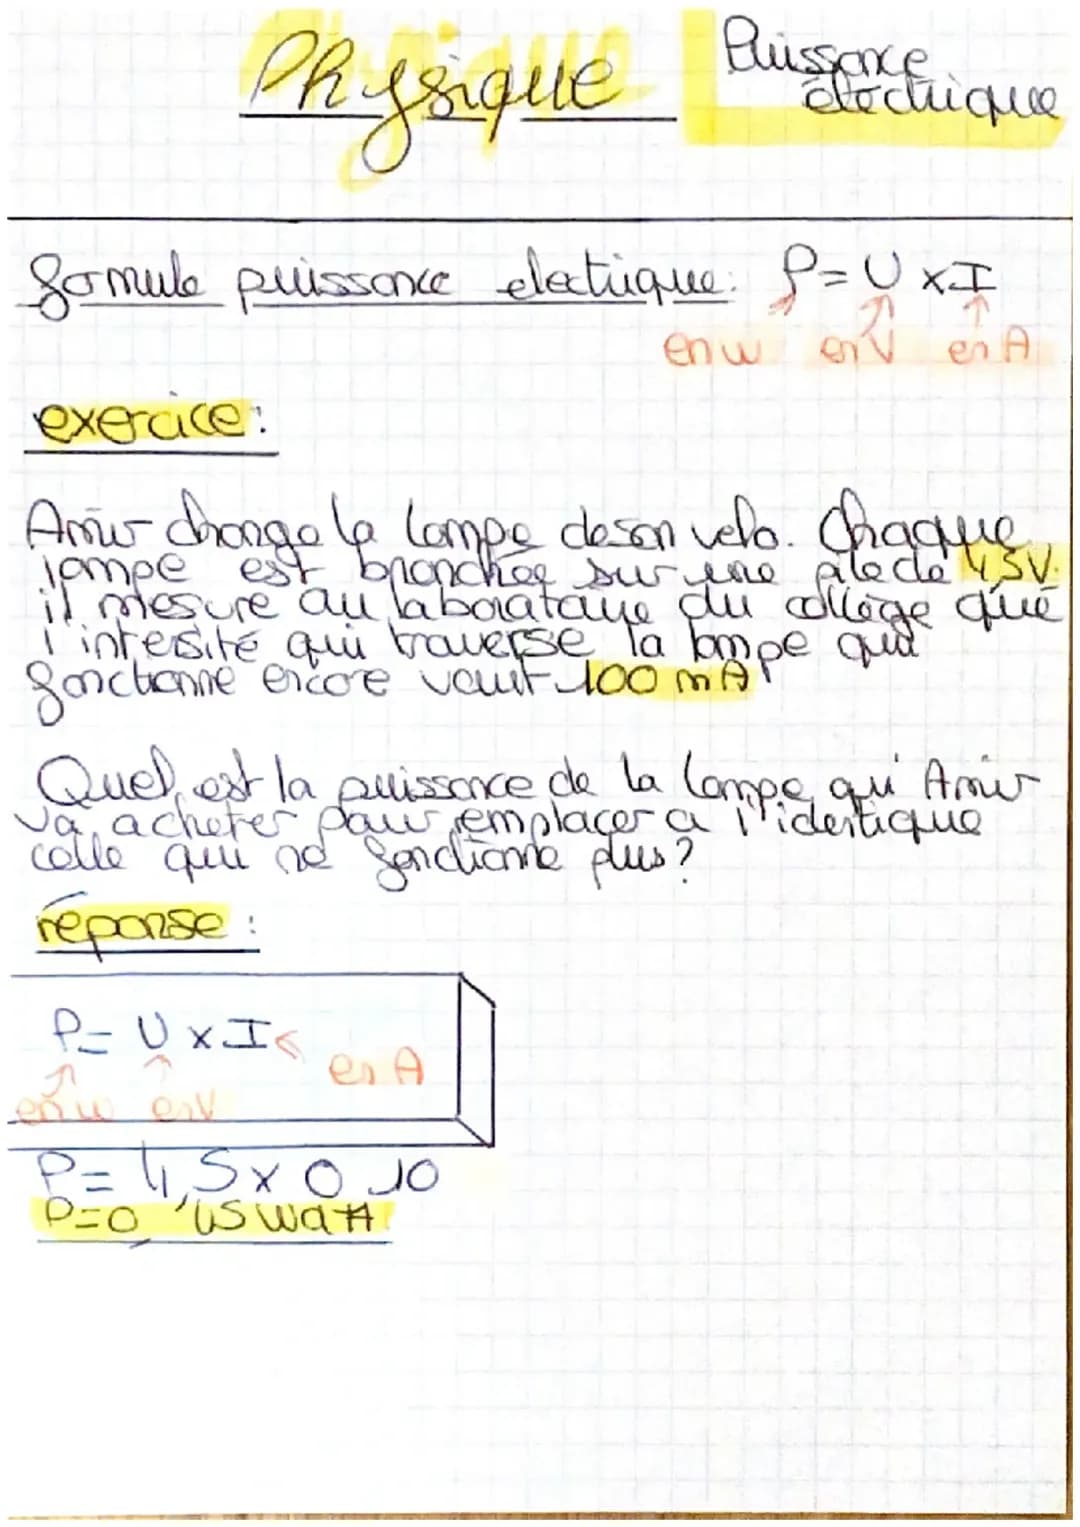 Physique
Puissance
électrique
formule puissance electrique: P=U x I
en w en V en A
exercice:
Amir change la lampe de son velo. Chaque
lampe est branchée sur une pile de 4,5V.
il mesure au laboratoire du collège que
l'intesité qui traverse la lampe qui
fonctionne encore vaut 100 mA
Quel est la puissance de la lampe qu' Amir
va acheter pour remplacer a l'identique
celle qui ne fonctionne plus?
réponse:
P= U x I
en A
en w en V
P= 4,5 x 0,10
P=0,45 watt